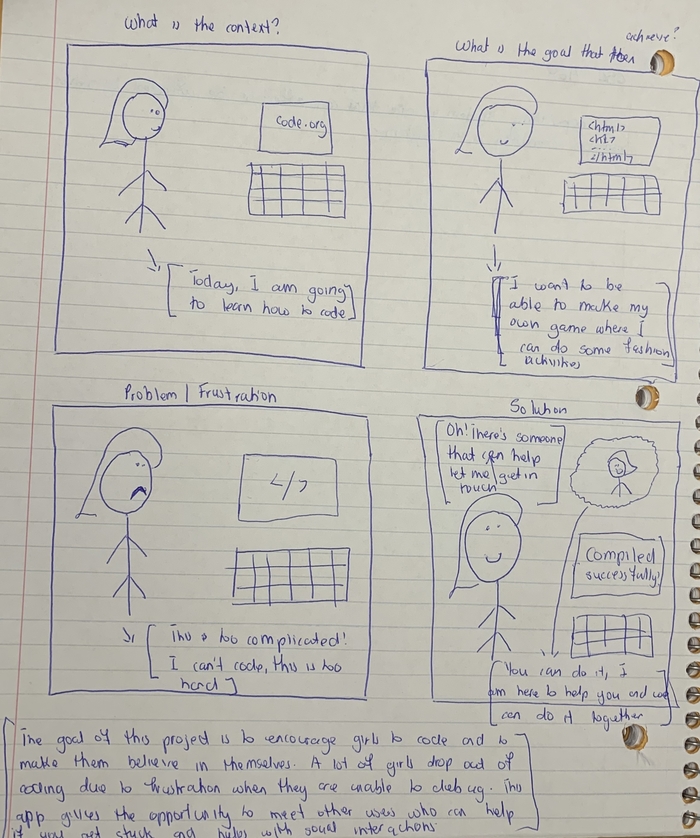 What is the context?
code.org
Today, I am going
to learn how to code
achieve?
What is the goal that
<html>
<h1>
</html>
I want to be
able to make my
own game where I
can do some fashion
activities
Problem | Frustration
</>
This is too complicated!
I can't code, this is too
hard
Solution
Oh! There's someone
that can help
let me get in
touch
Compiled
successfully!
You can do it, I
am here to help you and we
can do it together
The goal of this project is to encourage girls to code and to
make them believe in themselves. A lot of girls drop out of
coding due to frustration when they are unable to debug. This
app gives the opportunity to meet other users who can help
if you get stuck and helps with social interactions.